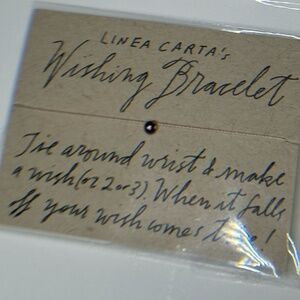 LINEA CARTA's
Wishing Bracelet
Tie around wrist & make
a wish (or 2 or 3). When it falls
off your wish comes true!